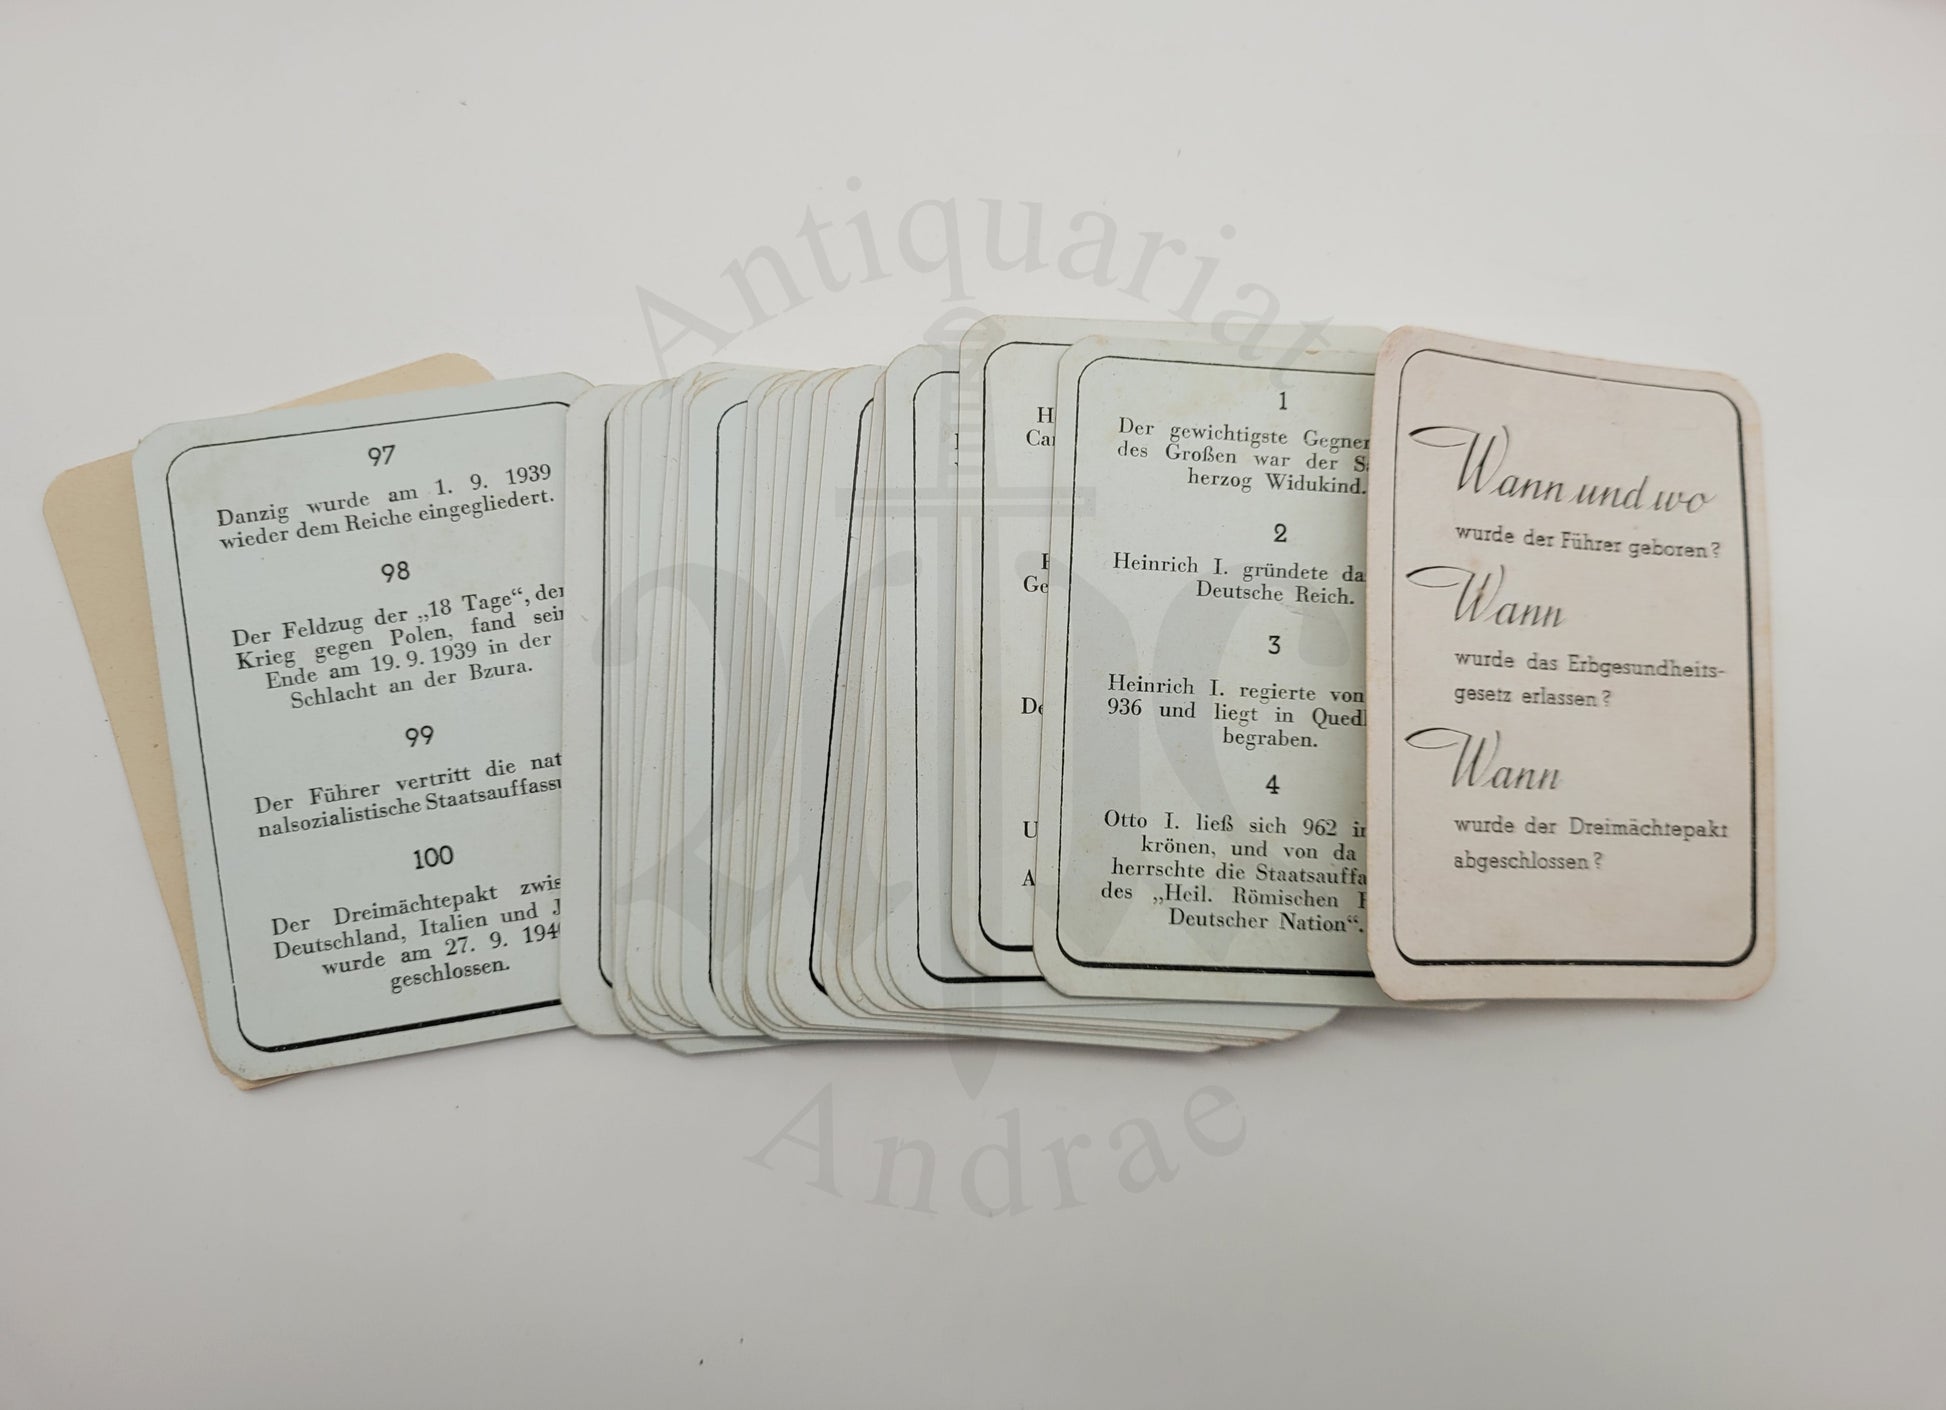 Antiquariat
97
Danzig wurde am 1. 9. 1939
wieder dem Reiche eingegliedert.
98
Der Feldzug der „18 Tage“, der
Krieg gegen Polen, fand sein
Ende am 19. 9. 1939 in der
Schlacht an der Bzura.
99
Der Führer vertritt die nat
nalsozialistische Staatsauffassu
100
Der Dreimächtepakt zwis
Deutschland, Italien und J
wurde am 27. 9. 194
geschlossen.
H
Car
Ge
De
U
A
1
Der gewichtigste Gegner
des Großen war der S
herzog Widukind.
2
Heinrich I. gründete da
Deutsche Reich.
3
Heinrich I. regierte von
936 und liegt in Quedl
begraben.
4
Otto I. ließ sich 962 in
krönen, und von da
herrschte die Staatsauffa
des „Heil. Römischen
Deutscher Nation“.
Wann und wo
wurde der Führer geboren?
Wann
wurde das Erbgesundheits-
gesetz erlassen?
Wann
wurde der Dreimächtepakt
abgeschlossen?
Andrae